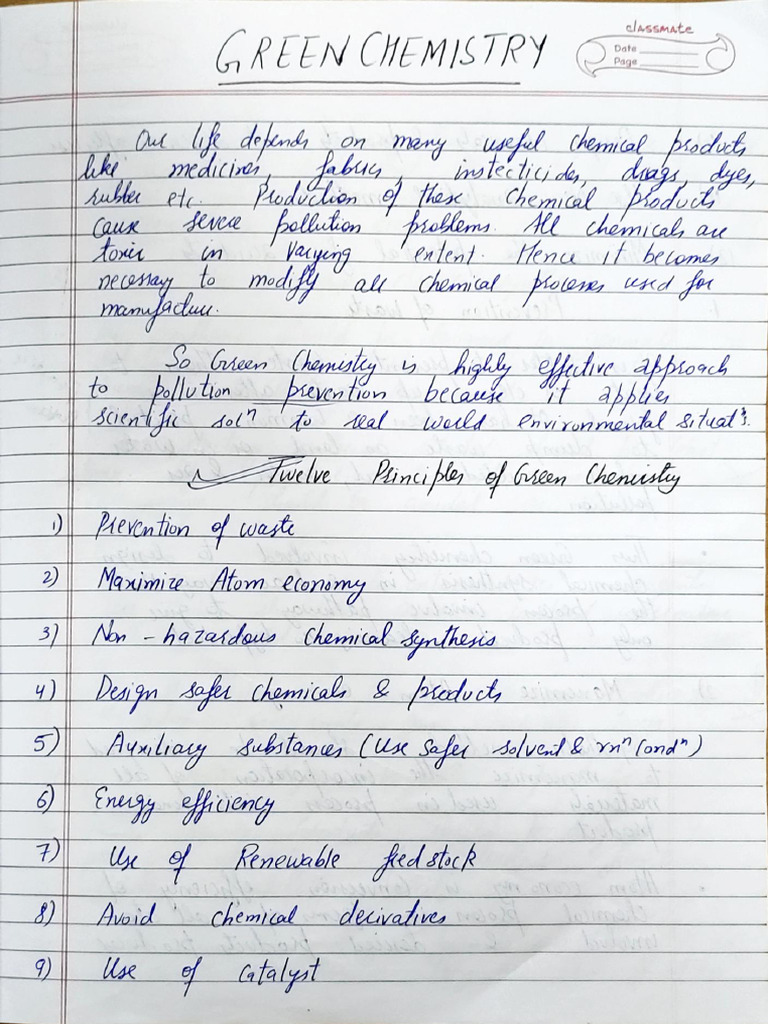 GREEN CHEMISTRY
classmate
Date
Page
Our life depends on many useful chemical products
like medicines, fabrics, instecticides, drugs, dyes,
rubber etc. Production of these chemical products
cause severe pollution problems. All chemicals are
toxic in varying extent. Hence it becomes
necessary to modify all chemical processes used for
manufacture.
So Green Chemistry is highly effective approach
to pollution prevention because it applies
scientific solⁿ to real world environmental situatⁿs.
Twelve Principles of Green Chemistry
1) Prevention of waste
2) Maximize Atom economy
3) Non-hazardous chemical synthesis
4) Design safer chemicals & products
5) Auxiliary substances (Use safer solvent & rxⁿ condⁿ)
6) Energy efficiency
7) Use of Renewable feedstock
8) Avoid chemical derivatives
9) Use of catalyst